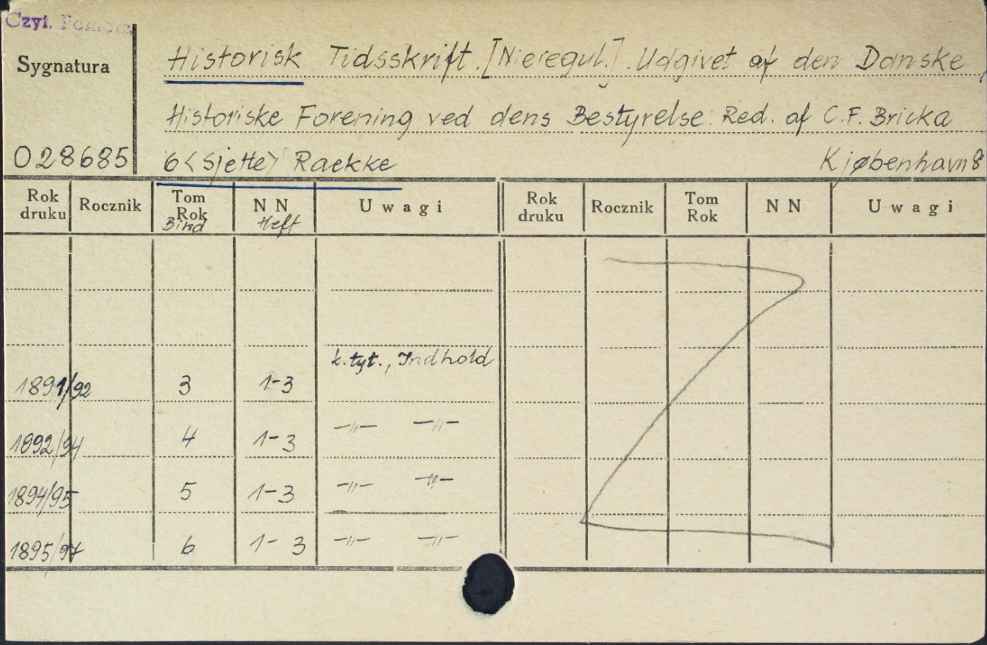 Czyt.
Sygnatura
Historisk Tidsskrift. [Nieregul.]. Udgivet af den Danske
Historiske Forening ved dens Bestyrelse. Red. af C.F. Bricka
028685 6<Sjette> Raekke Kjøbenhavn 8
Rok druku Rocznik Tom Rok Bind NN Heft Uwagi Rok druku Rocznik Tom Rok NN Uwagi
k.tyt., Indhold
1891/92 3 1-3
1892/94 4 1-3 -"- -"-
1894/95 5 1-3 -"- -"-
1895/97 6 1-3 -"- -"-